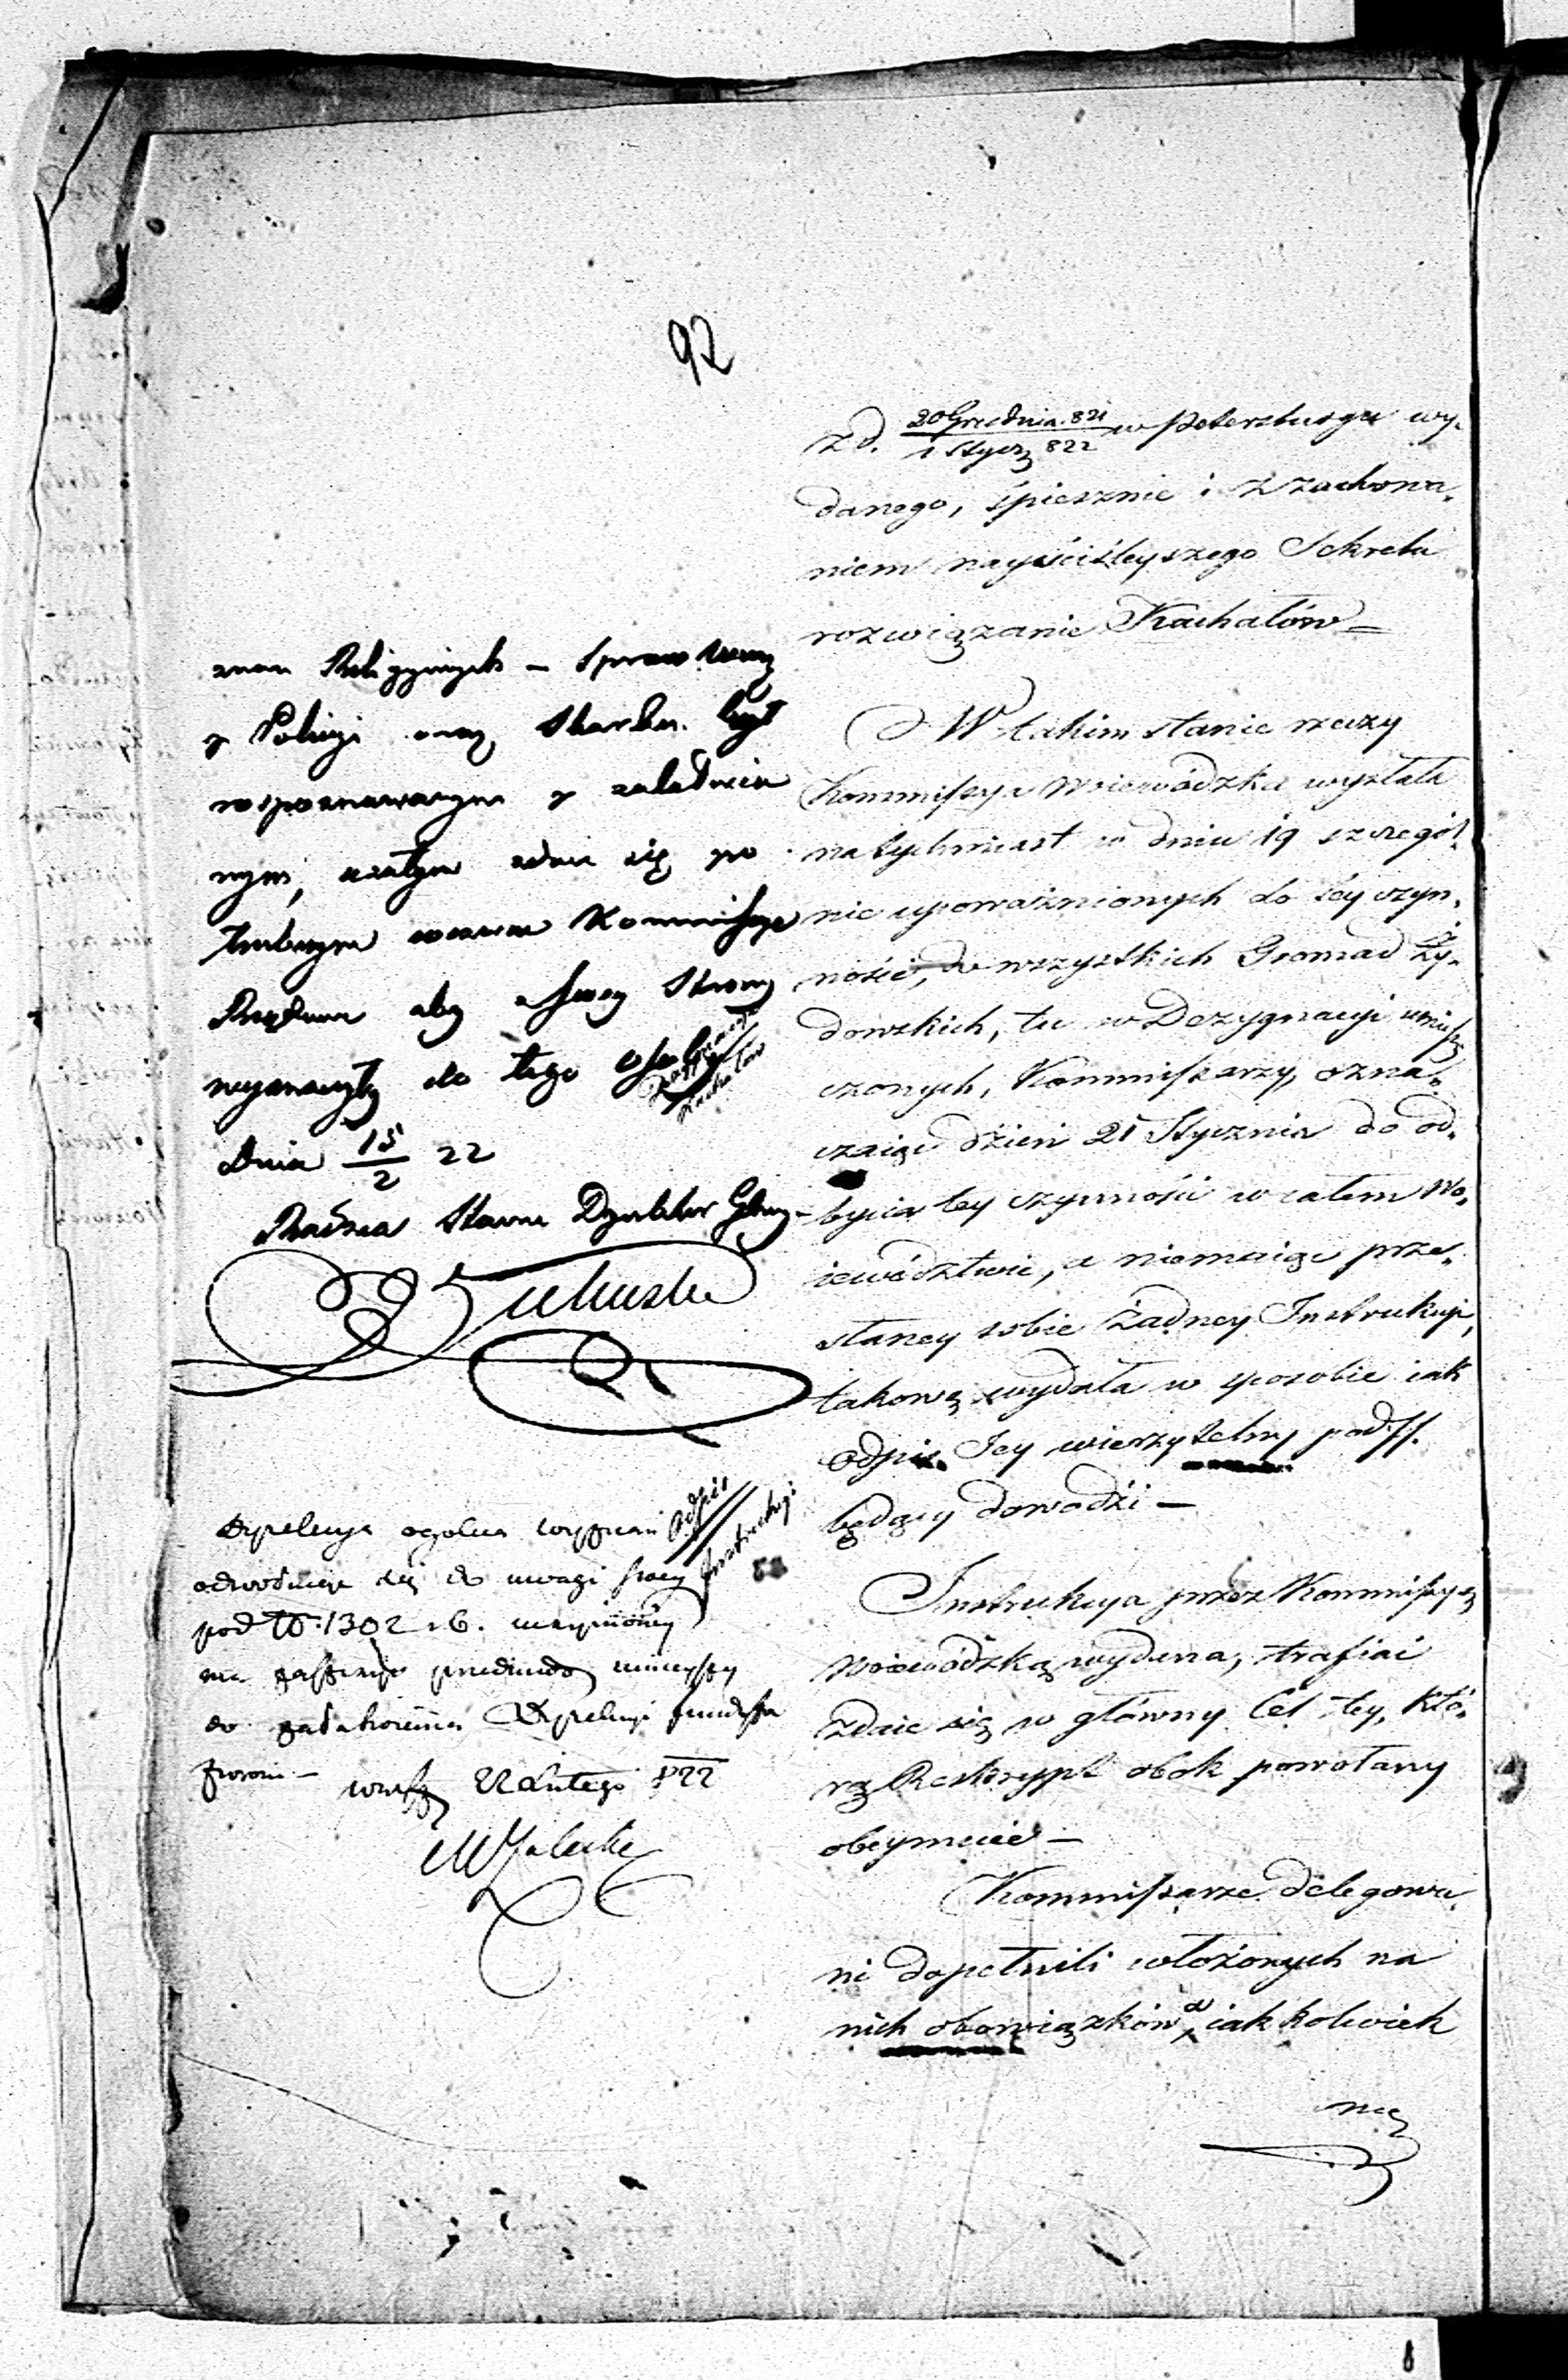 92
z d. 20 Grudnia 821 / 1 Stycz 822 w Petersburgu wy-
danego, śpiesznie i z zachowa-
niem nayściśleyszego Sekretu
rozwiązanie Kachałów —
W takim stanie rzeczy
Kommissya Woiewódzka wysłała
natychmiast w dniu 19 szczegól-
nie upoważnionych do tey czyn-
ności, do wszystkich Gromad Ży-
dowskich, tu w Dezygnacyi umiesz
czonych, Kommissarzy, ozna-
czaiąc dzień 21 Stycznia do od-
bycia tey czynności w całem Wo-
iewództwie, a niemaiąc prze-
słaney sobie żadney Instrukcyi,
takową wydała w sposobie iak
odpis Jey wierzytelny pod //.
będący dowodzi —
Instrukcya przez Kommissyą
Woiewódzką wydana, trafiać
zdaie się w główny Cel tey, któ-
rą Reskrypt obok powołany
obeymuie —
Kommissarze delegowa-
ni dopełnili włożonych na
nich obowiązków, a iakkolwiek
nie
znań Religiynych — Spraw Wewn
y Policyi oraz Skarbu. był
rozpoznawanym y załatwio
nym, zatym zdaie się po
trzebnym wezwać Kommissye
Rządowe aby z swey Strony
wyznaczyły do tego osoby
Dezygnacya
Kachałów
Dnia 15/2 22
Radzca Stanu Dyrektor Glny
Odpis
Instrukcyi
Dyrekcya ogolna wyznań
odwołuje się do uwagi swey
pod No 1302 r b. uczynioney
do załatwienia Dyrekcyi
22 Lutego 822
MZaleski